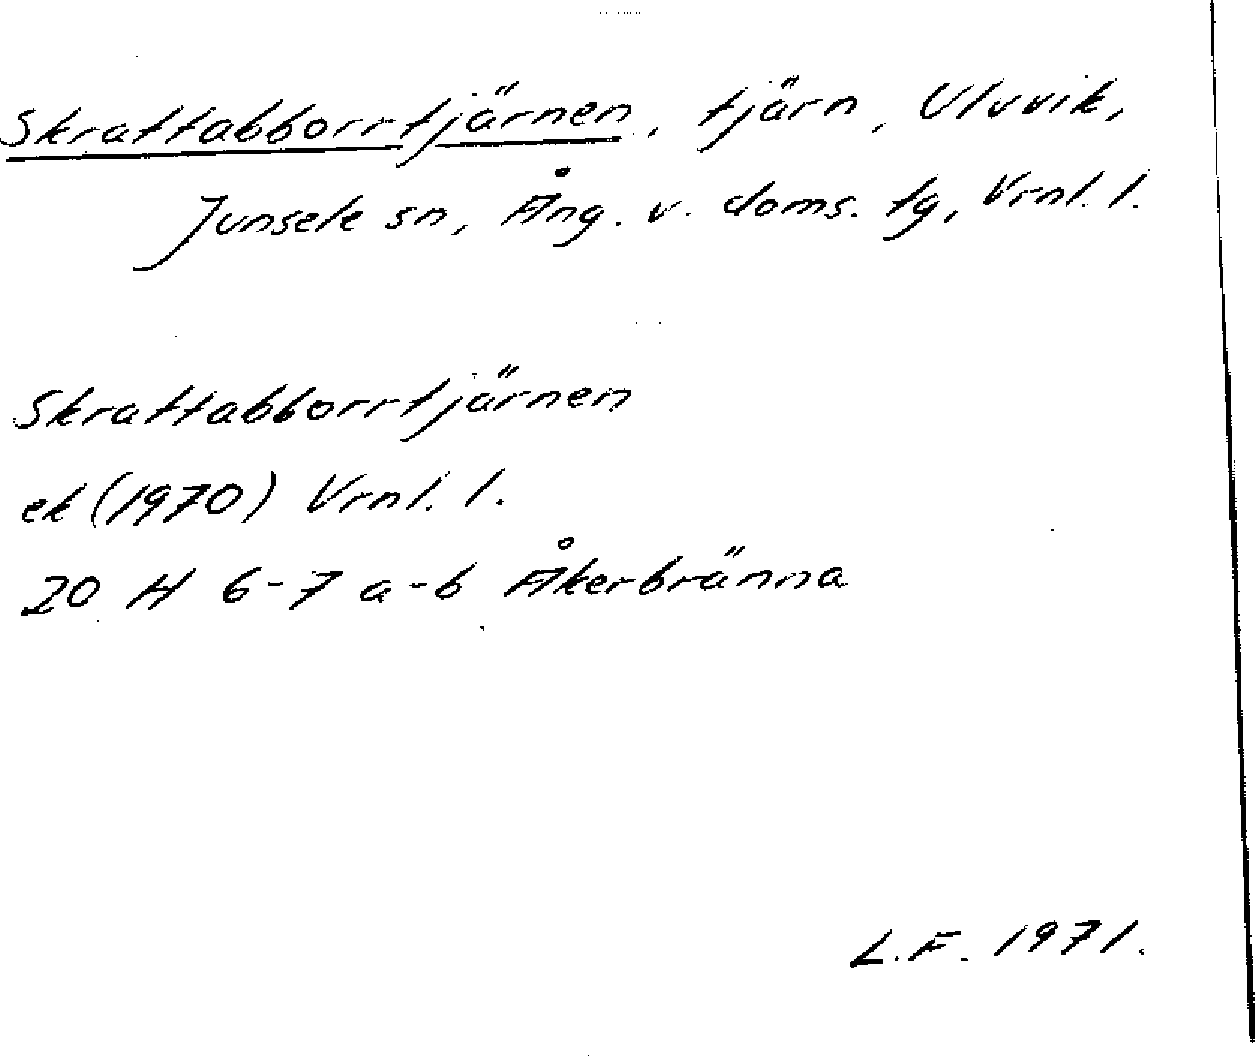 Skrattabborrtjärnen, tjärn, Ulvvik,
Junsele sn, Ång. v. doms. tg, Vrnl. l.
Skrattabborrtjärnen
ek (1970) Vrnl. l.
20 H 6-7 a-b Åkerbränna
L.F. 1971.